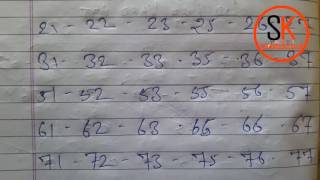 21 - 22 - 23 - 25 - 26
SK
31 - 32 - 33 - 35 - 36 - 37
51 - 52 - 53 - 55 - 56 - 57
61 - 62 - 63 - 65 - 66 - 67
71 - 72 - 73 - 75 - 76 - 77